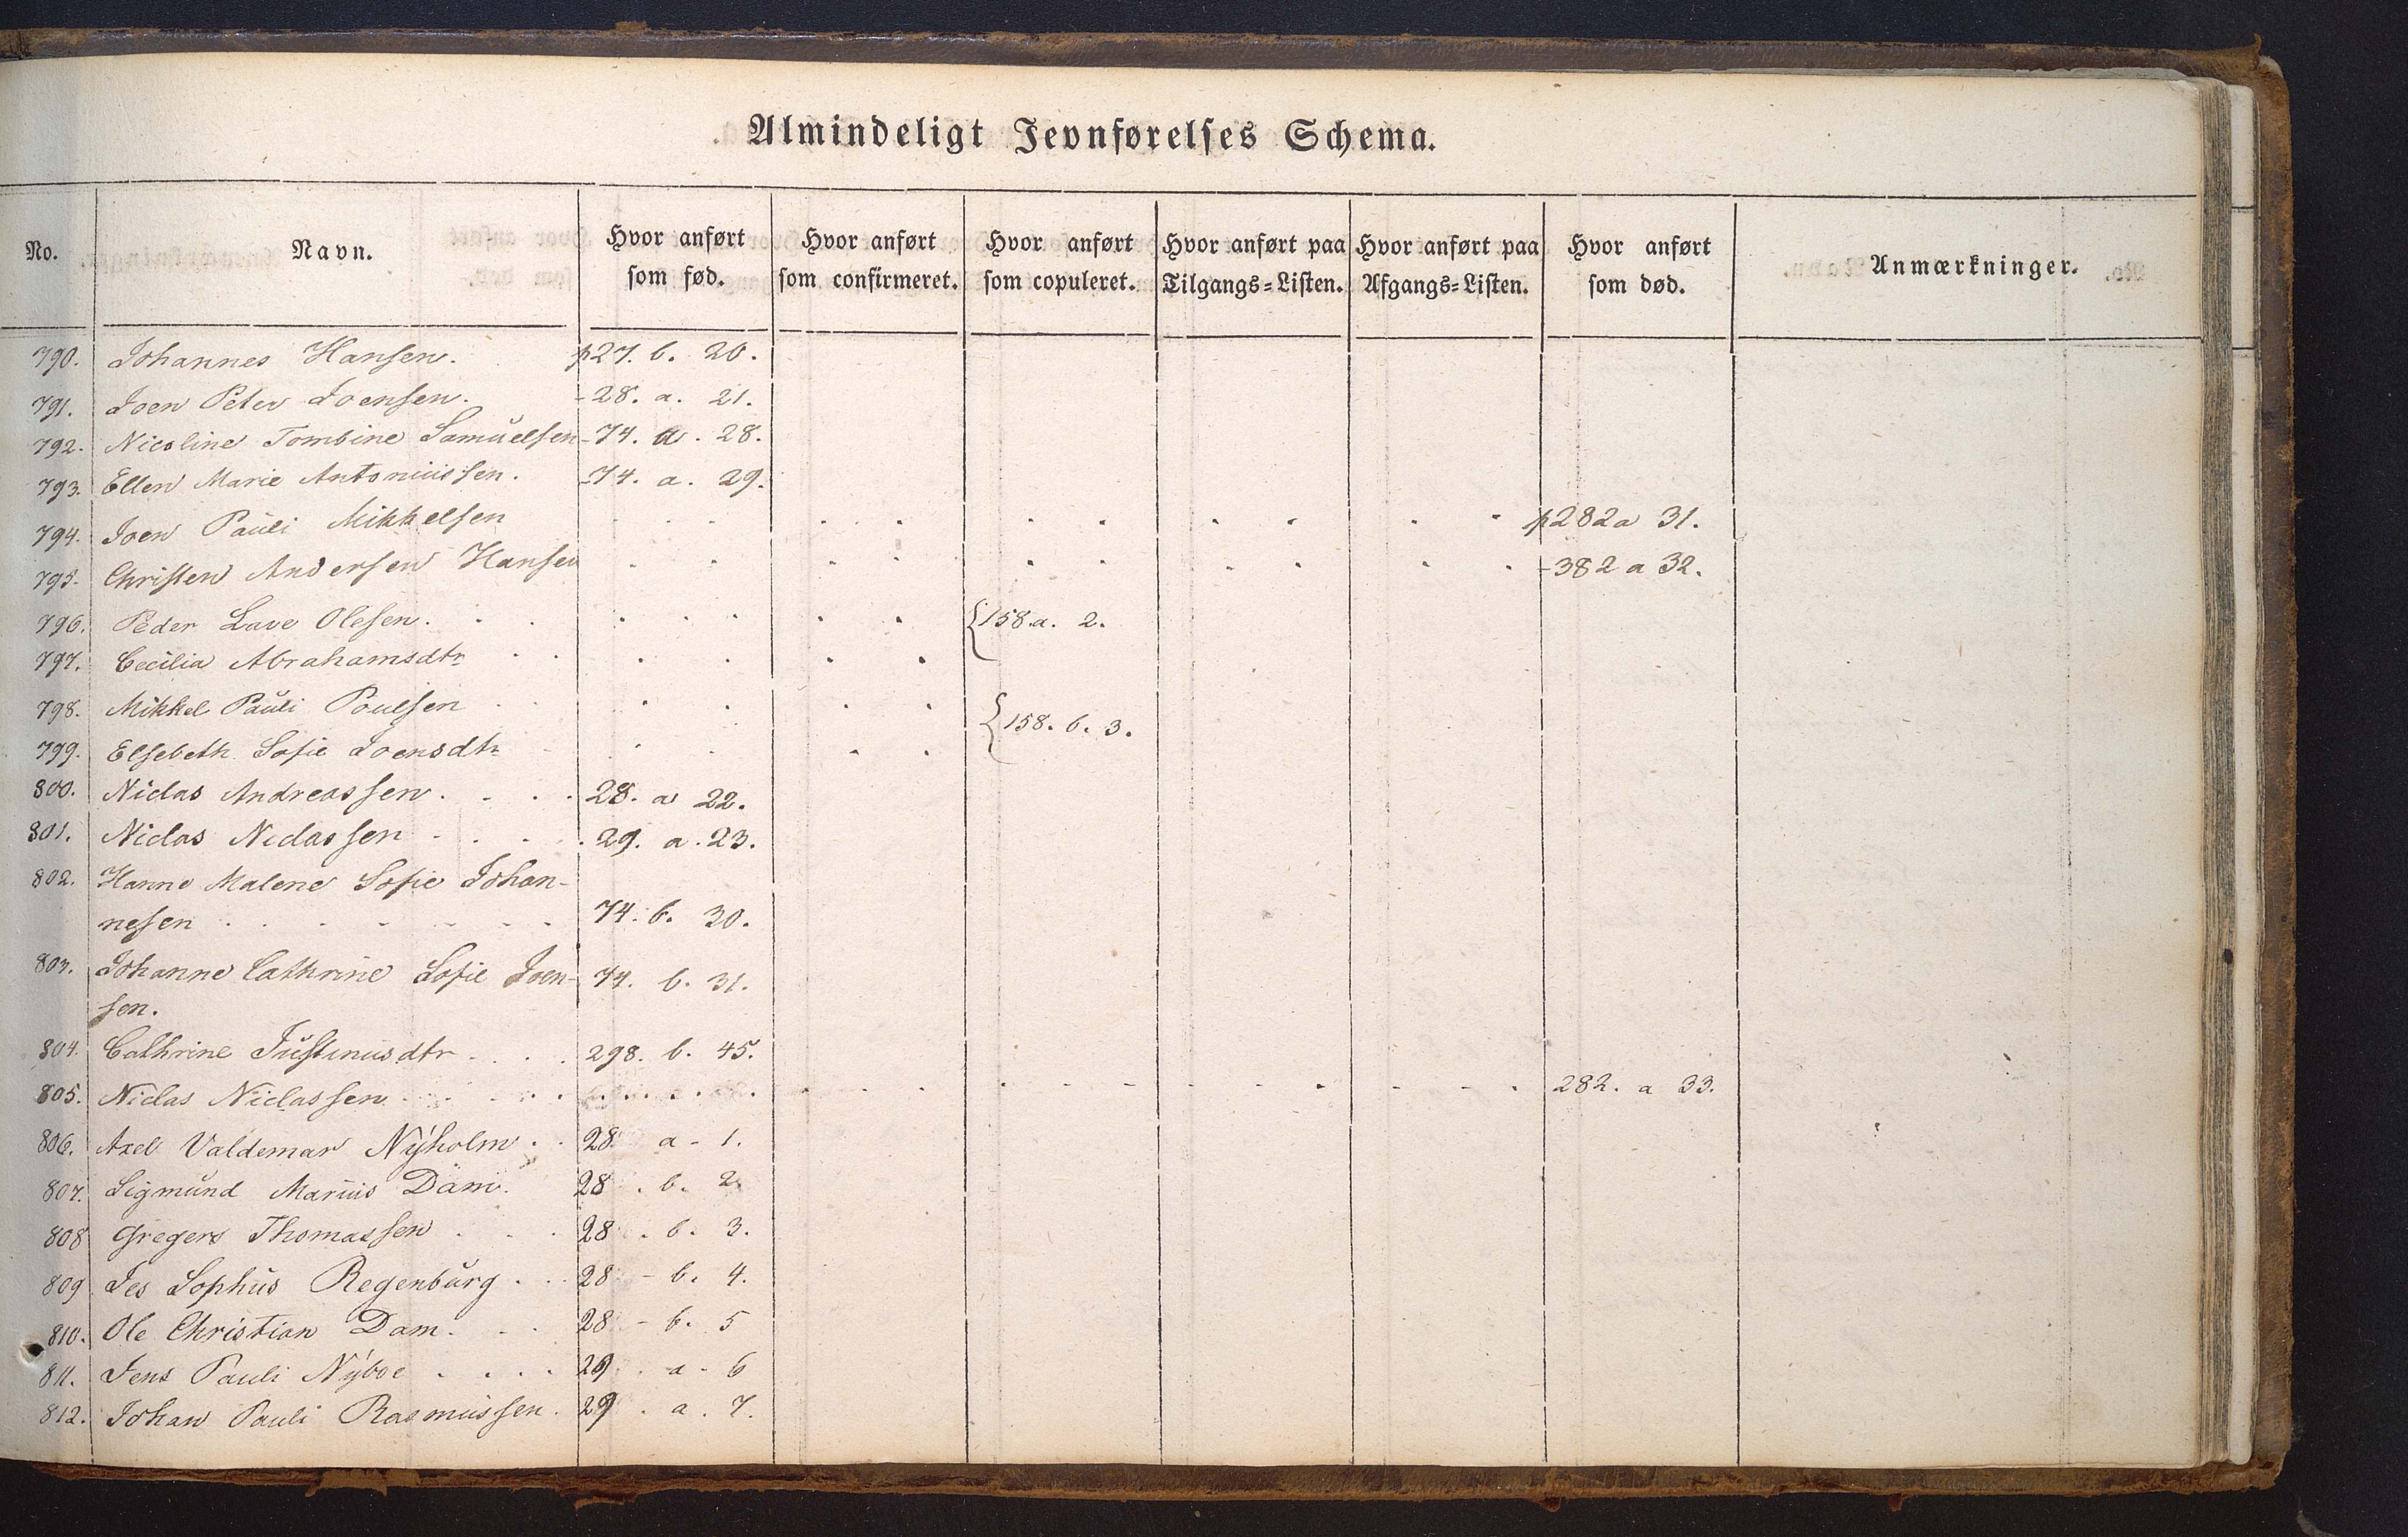 Almindeligt Jevnførelses Schema.
No. Navn. Hvor anført som fød. Hvor anført som confirmeret. Hvor anført som copuleret. Hvor anført paa Tilgangs=Listen. Hvor anført paa Afgangs=Listen. Hvor anført som død. Anmærkninger.
790. Johannes Hansen. p27. b. 20.
791. Joen Peter Joensen. - 28. a. 21.
792. Nicoline Tombine Samuelsen - 74. a. 28.
793. Ellen Marie Antoniussen. - 74. a. 29.
794. Joen Pauli Mikkelsen p282a 31.
795. Christen Andersen Hansen - 382 a 32.
796. Peder Lave Olesen. {158.a. 2.
797. Cecilia Abrahamsdtr
798. Mikkel Pauli Poulsen {158. b. 3.
799. Elsebeth Sofie Joensdtr
800. Niclas Andreassen. 28. a 22.
801. Niclas Niclassen 29. a. 23.
802. Hanne Malene Sofie Johan-
nesen 74. b. 30.
803. Johanne Cathrine Sofie Joen- 74. b. 31.
sen.
804. Cathrine Justinusdtr 298. b. 45.
805. Niclas Niclassen 282. a 33.
806. Axel Valdemar Nyholm. 28 a - 1.
807. Sigmund Marius Dam. 28 . b. 2.
808 Gregers Thomassen 28 . b. 3.
809 Jes Sophus Regenburg. 28 - b. 4.
810. Ole Christian Dam. 28 - b. 5
811. Jens Pauli Nyboe 29 . a - 6
812. Johan Pauli Rasmussen. 29 . a. 7.